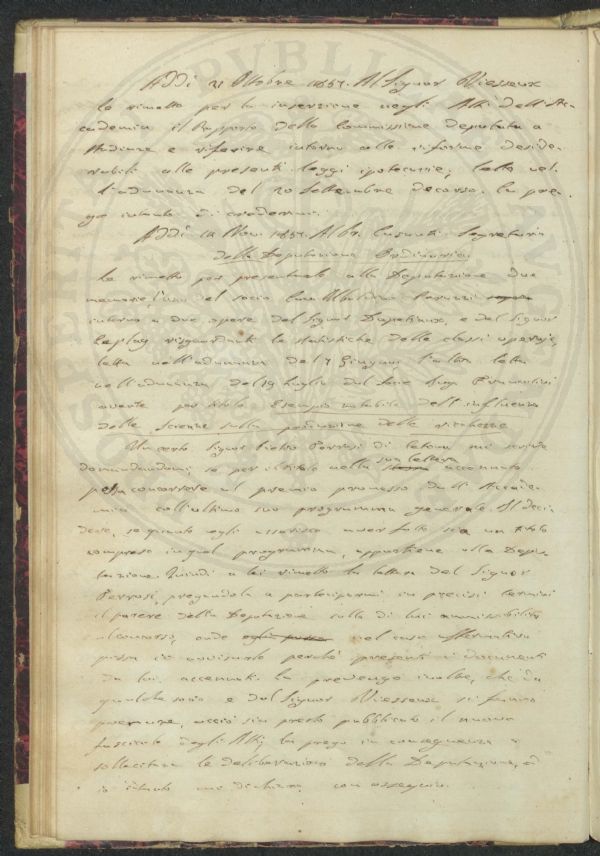 Addì 21 Ottobre 1857. Al Signor Viesseux
Le rimetto per la inserzione negli Atti dell'Ac-
cademia il Rapporto della Commissione deputata a
studiare e riferire intorno alle riforme deside-
rabili alle presenti leggi ipotecarie, letto nel-
l'adunanza del 20 Settembre decorso. La pre-
go intanto di credermi.
Addì 12 Nov. 1857. Al Segretario
della Deputazione Ordinaria
Le rimetto per presentarle alla Deputazione due
memorie, l'una del socio Ubaldino Peruzzi
intorno a due opere del Signor Ducpetiaux, e del Signor
Leplay risguardanti le statistiche delle classi operaje,
letta nell'adunanza del 7 Giugno, l'altra letta
nell'adunanza del 19 Luglio dal Socio
avente per titolo Esempio notabile dell'influenza
delle scienze sulla produzione delle ricchezze
Un certo Signor Pietro Perrosi di mi scrive
sua lettera
domandandomi se per il titolo nella accennato
possa concorrere al premio promosso dall'Accade-
mia coll'ultimo suo programma generale. Il deci-
dere, se quanto egli asserisce aver fatto sia un titolo
compreso in qual programma, appartiene alla Depu-
tazione. Quindi a lei rimetto la lettera del Signor
Perrosi, pregandola a parteciparmi in precisi termini
il parere della Deputazione sulla di lui ammissibilità
al concorso, onde nel caso affermativo
possa io avvisarlo perché presenti i documenti
da lui accennati. La prevengo inoltre, che da
qualche socio e dal Signor Viesseux si fanno
premure, acciò sia presto pubblicato il nuovo
fascicolo degli Atti; la prego in conseguenza a
sollecitare le deliberazioni della Deputazione, ed
io intanto mi dichiaro con ossequio.